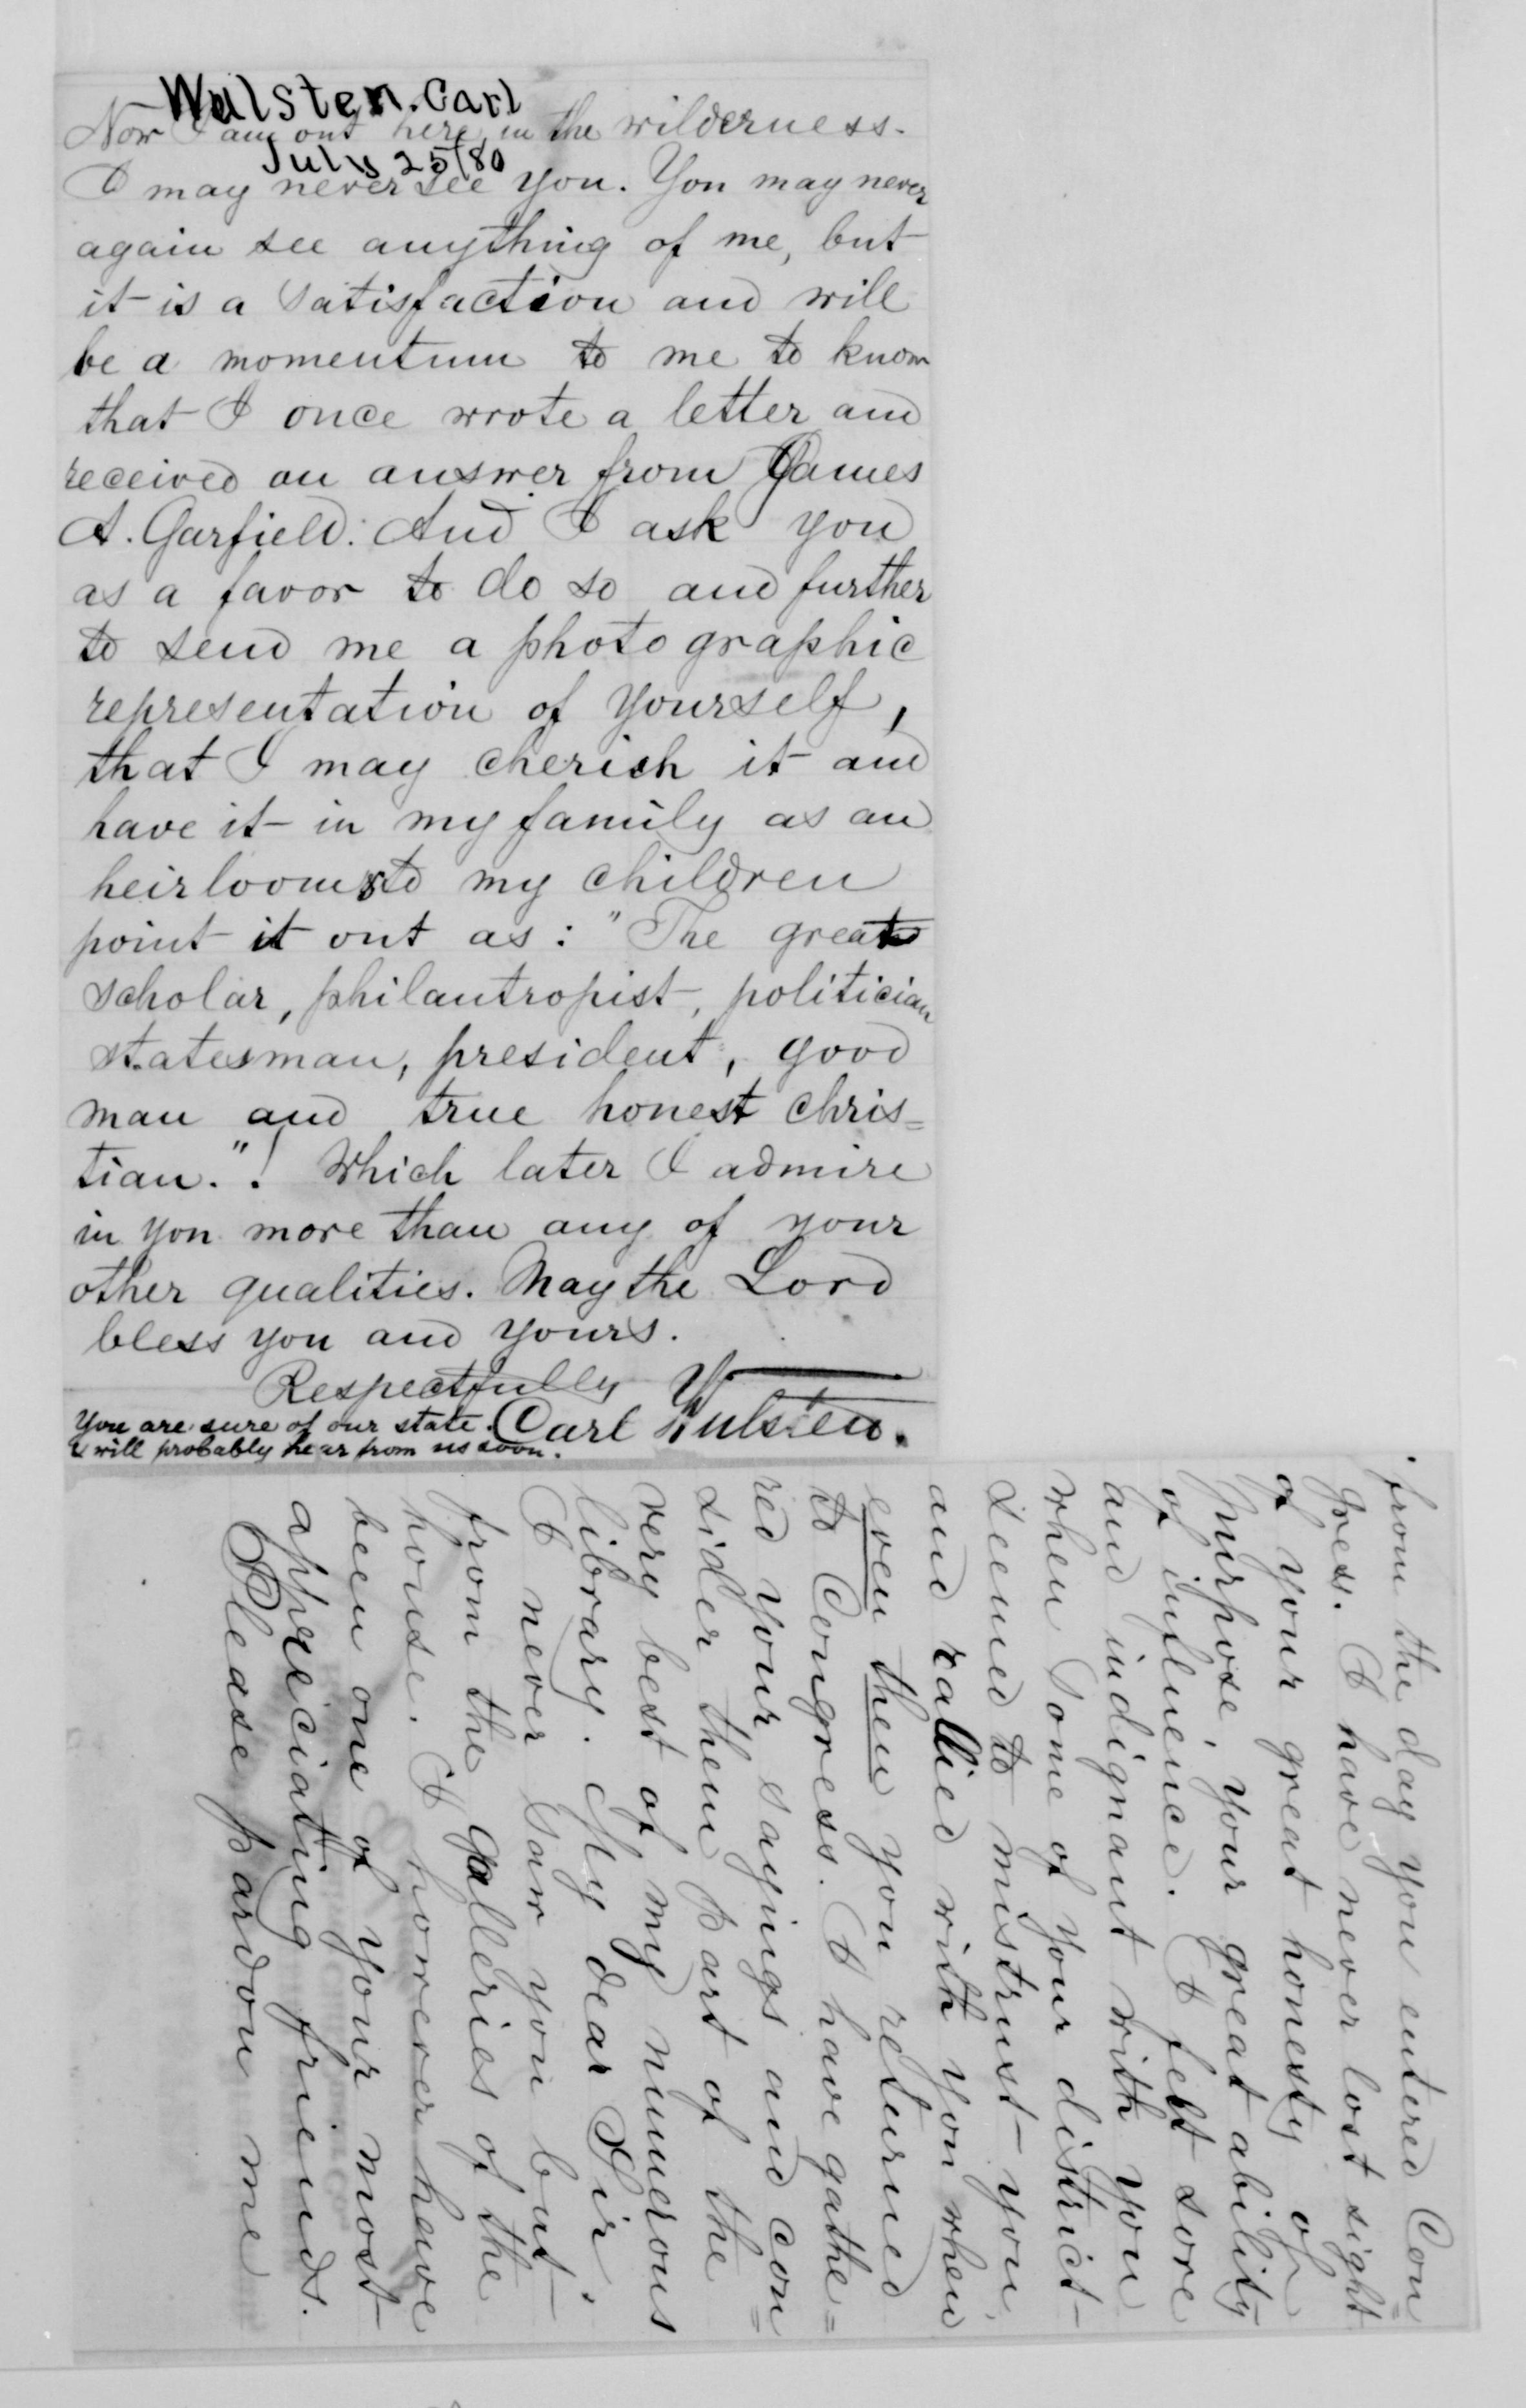 Wulsten. Carl
Now I am out here in the wilderness.
July 25/80
I may never see you. You may never
again see anything of me, but
it is a satisfaction and will
be a momentum to me to know
that I once wrote a letter and
received an answer from James
A. Garfield. And I ask you
as a favor to do so and further
to send me a photographic
representation of yourself,
that I may cherish it and
have it in my family as an
heirloom to my children
point it out as: "The great
scholar, philantropist, politician
statesman, president, good
man and true honest chris=
tian."! Which later I admire
in you more than any of your
other qualities. May the Lord
bless you and yours.
Respectfully
Carl Wulsten.
You are sure of our state.
& will probably hear from us soon.
from the day you entered Con=
gress. I have never lost sight
of your great honesty of
purpose, your great ability
of influence. I felt sore
and indignant with you
when some of your district
seemed to mistrust you,
and rallied with you when
even then you returned
to Congress. I have gathe=
red your sayings and con=
sider them part of the
very best of my numerous
library. My dear Sir,
I never saw you but
from the galleries of the
house. I however have
been one of your most
appreciating friends.
Please pardon me